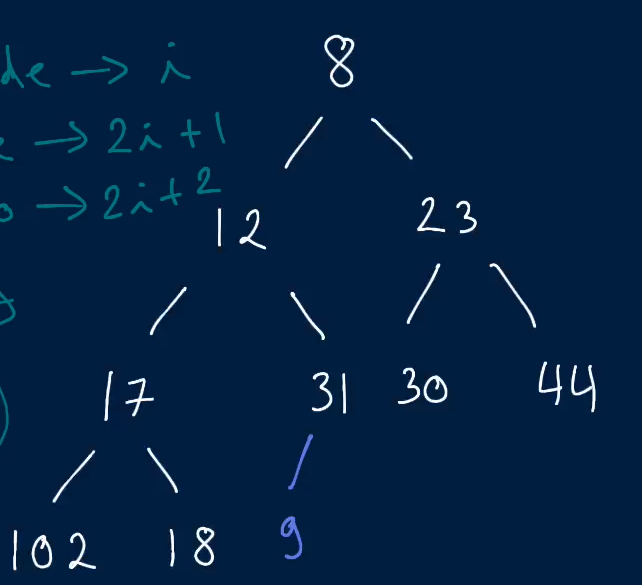 8
de → i
→ 2i+1
→ 2i+2
12 23
17 31 30 44
102 18 9